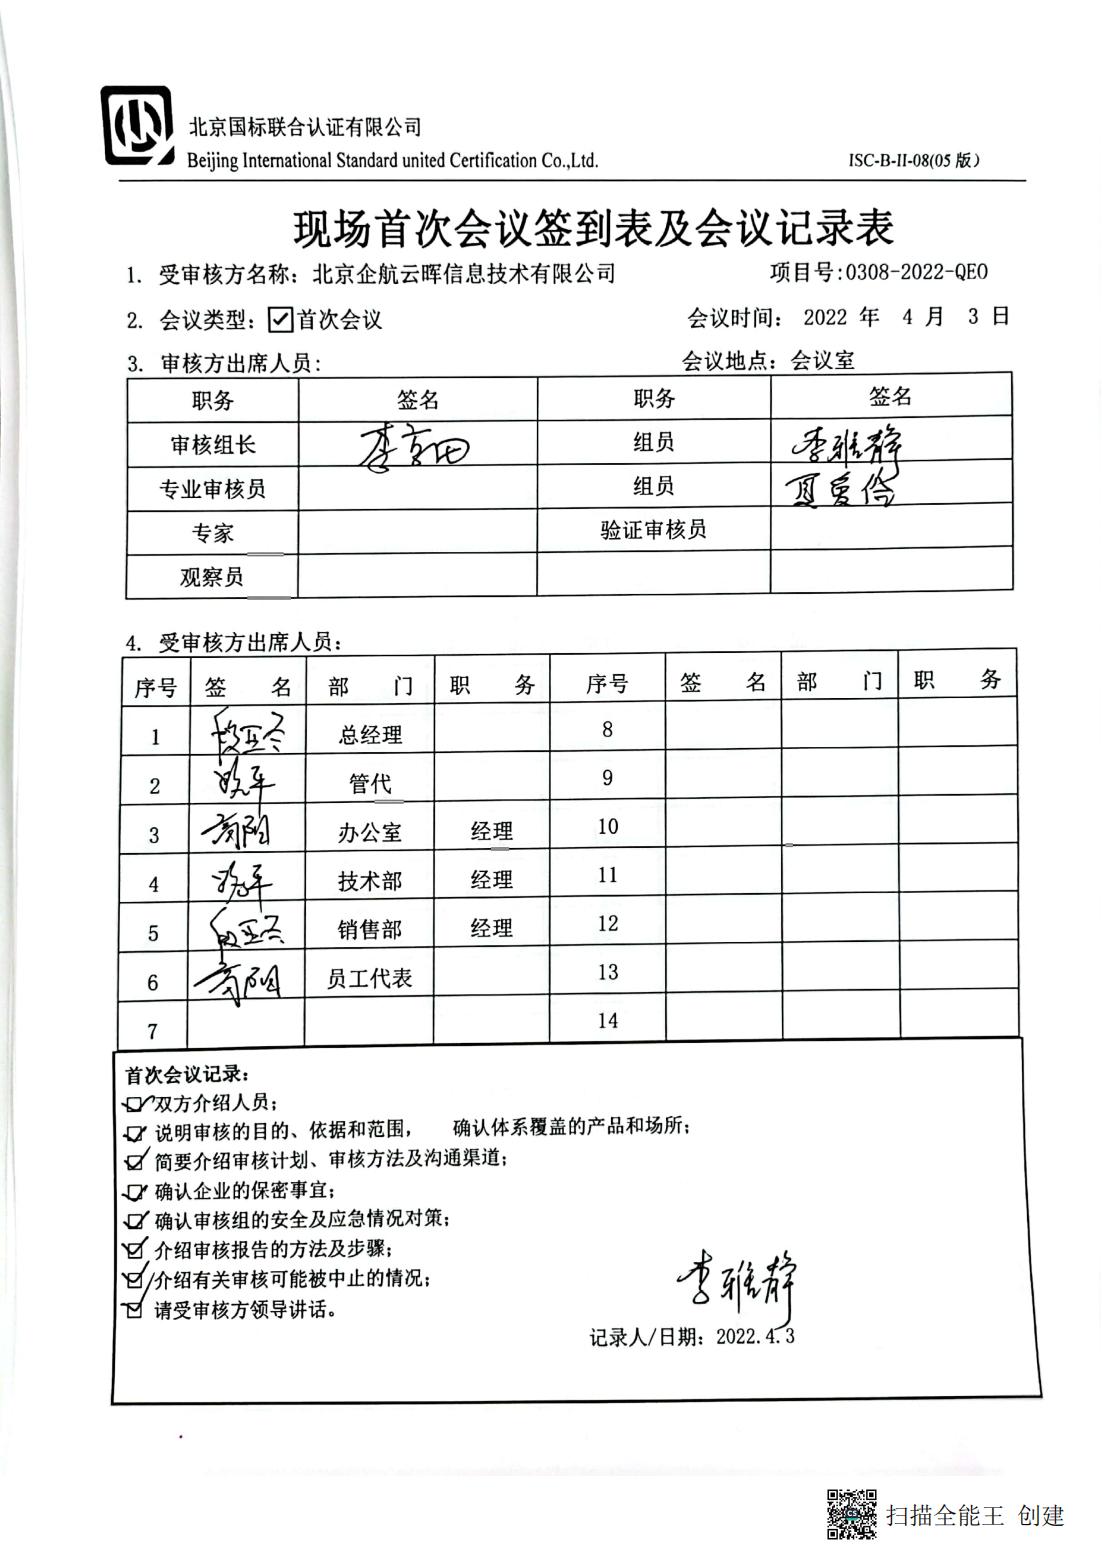 北京国标联合认证有限公司
Beijing International Standard united Certification Co.,Ltd.
ISC-B-II-08(05 版)
现场首次会议签到表及会议记录表
1. 受审核方名称: 北京企航云晖信息技术有限公司 项目号:0308-2022-QEO
2. 会议类型: ☑首次会议 会议时间: 2022 年 4 月 3 日
3. 审核方出席人员: 会议地点: 会议室
职务 签名 职务 签名
审核组长 李京田 组员 李雅静
专业审核员 组员
专家 验证审核员
观察员
4. 受审核方出席人员:
序号 签 名 部 门 职 务 序号 签 名 部 门 职 务
1 总经理 8
2 管代 9
3 高阳 办公室 经理 10
4 技术部 经理 11
5 销售部 经理 12
6 高阳 员工代表 13
7 14
首次会议记录:
☑双方介绍人员;
☑说明审核的目的、依据和范围, 确认体系覆盖的产品和场所;
☑简要介绍审核计划、审核方法及沟通渠道;
☑确认企业的保密事宜;
☑确认审核组的安全及应急情况对策;
☑介绍审核报告的方法及步骤;
☑介绍有关审核可能被中止的情况;
☑请受审核方领导讲话。
李雅静
记录人/日期: 2022.4.3
扫描全能王 创建